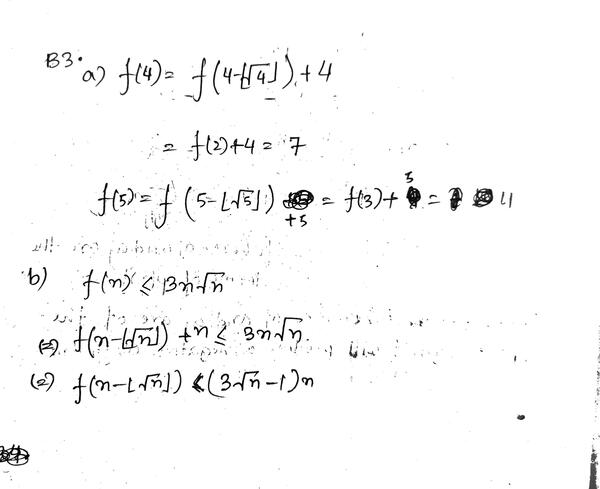 B3. a) f(4) = f(4-⌊√4⌋) + 4
= f(2)+4 = 7
f(5) = f(5-⌊√5⌋) +5 = f(3) + 5 = 11
b) f(n) ≤ 3n√n
(=) f(n-⌊√n⌋) + n ≤ 3n√n
(=) f(n-⌊√n⌋) ≤ (3√n-1)n